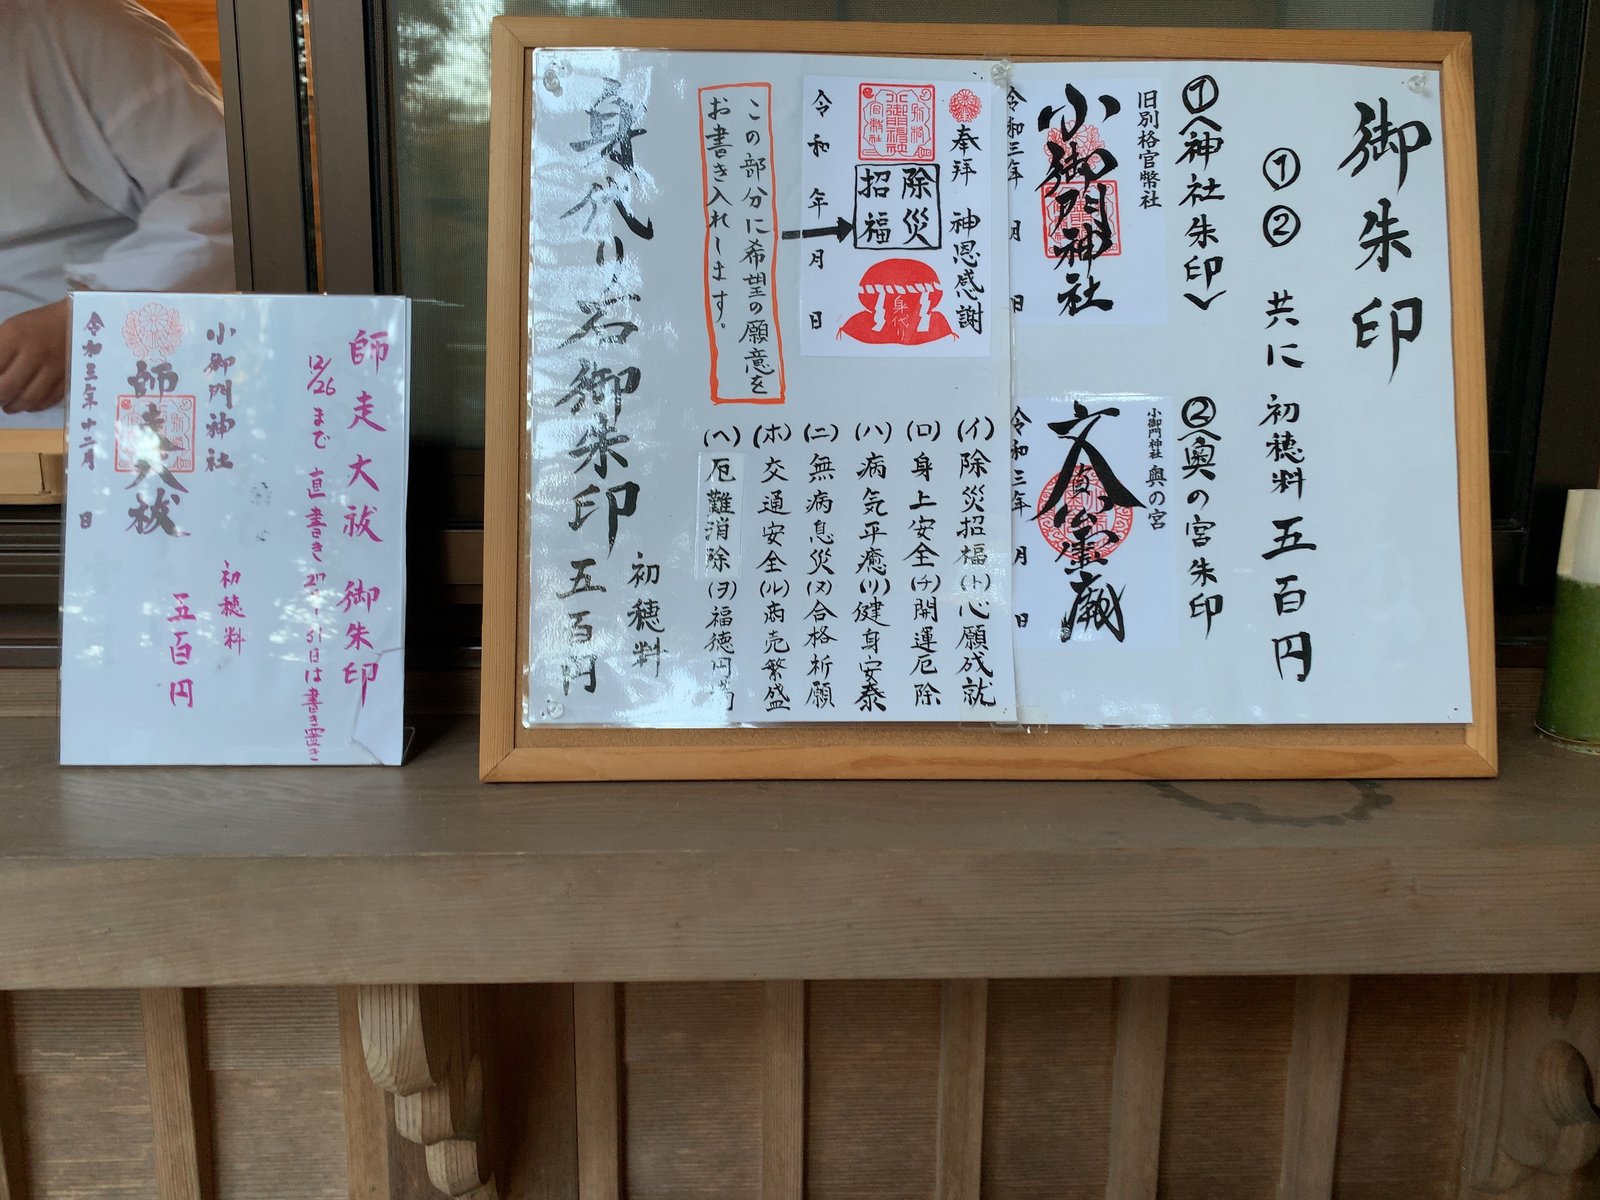 御朱印
①②共に 初穂料 五百円
①〈神社朱印〉
旧別格官幣社
小御門神社
令和三年 月 日
②〈奥の宮朱印
小御門神社 奥の宮
文貞公霊廟
令和三年 月 日
奉拝 神恩感謝
除災
招福
身代り
令和 年 月 日
この部分に希望の願意を
お書き入れします。
(イ)除災招福(ト)心願成就
(ロ)身上安全(チ)開運厄除
(ハ)病気平癒(リ)健身安泰
(ニ)無病息災(ヌ)合格祈願
(ホ)交通安全(ル)商売繁盛
(ヘ)厄難消除(ヲ)福徳円満
身代り石御朱印 初穂料 五百円
師走大祓 御朱印
12/26まで 直書き 27〜31日は書き置き
小御門神社
初穂料
五百円
師走大祓
令和三年十二月 日